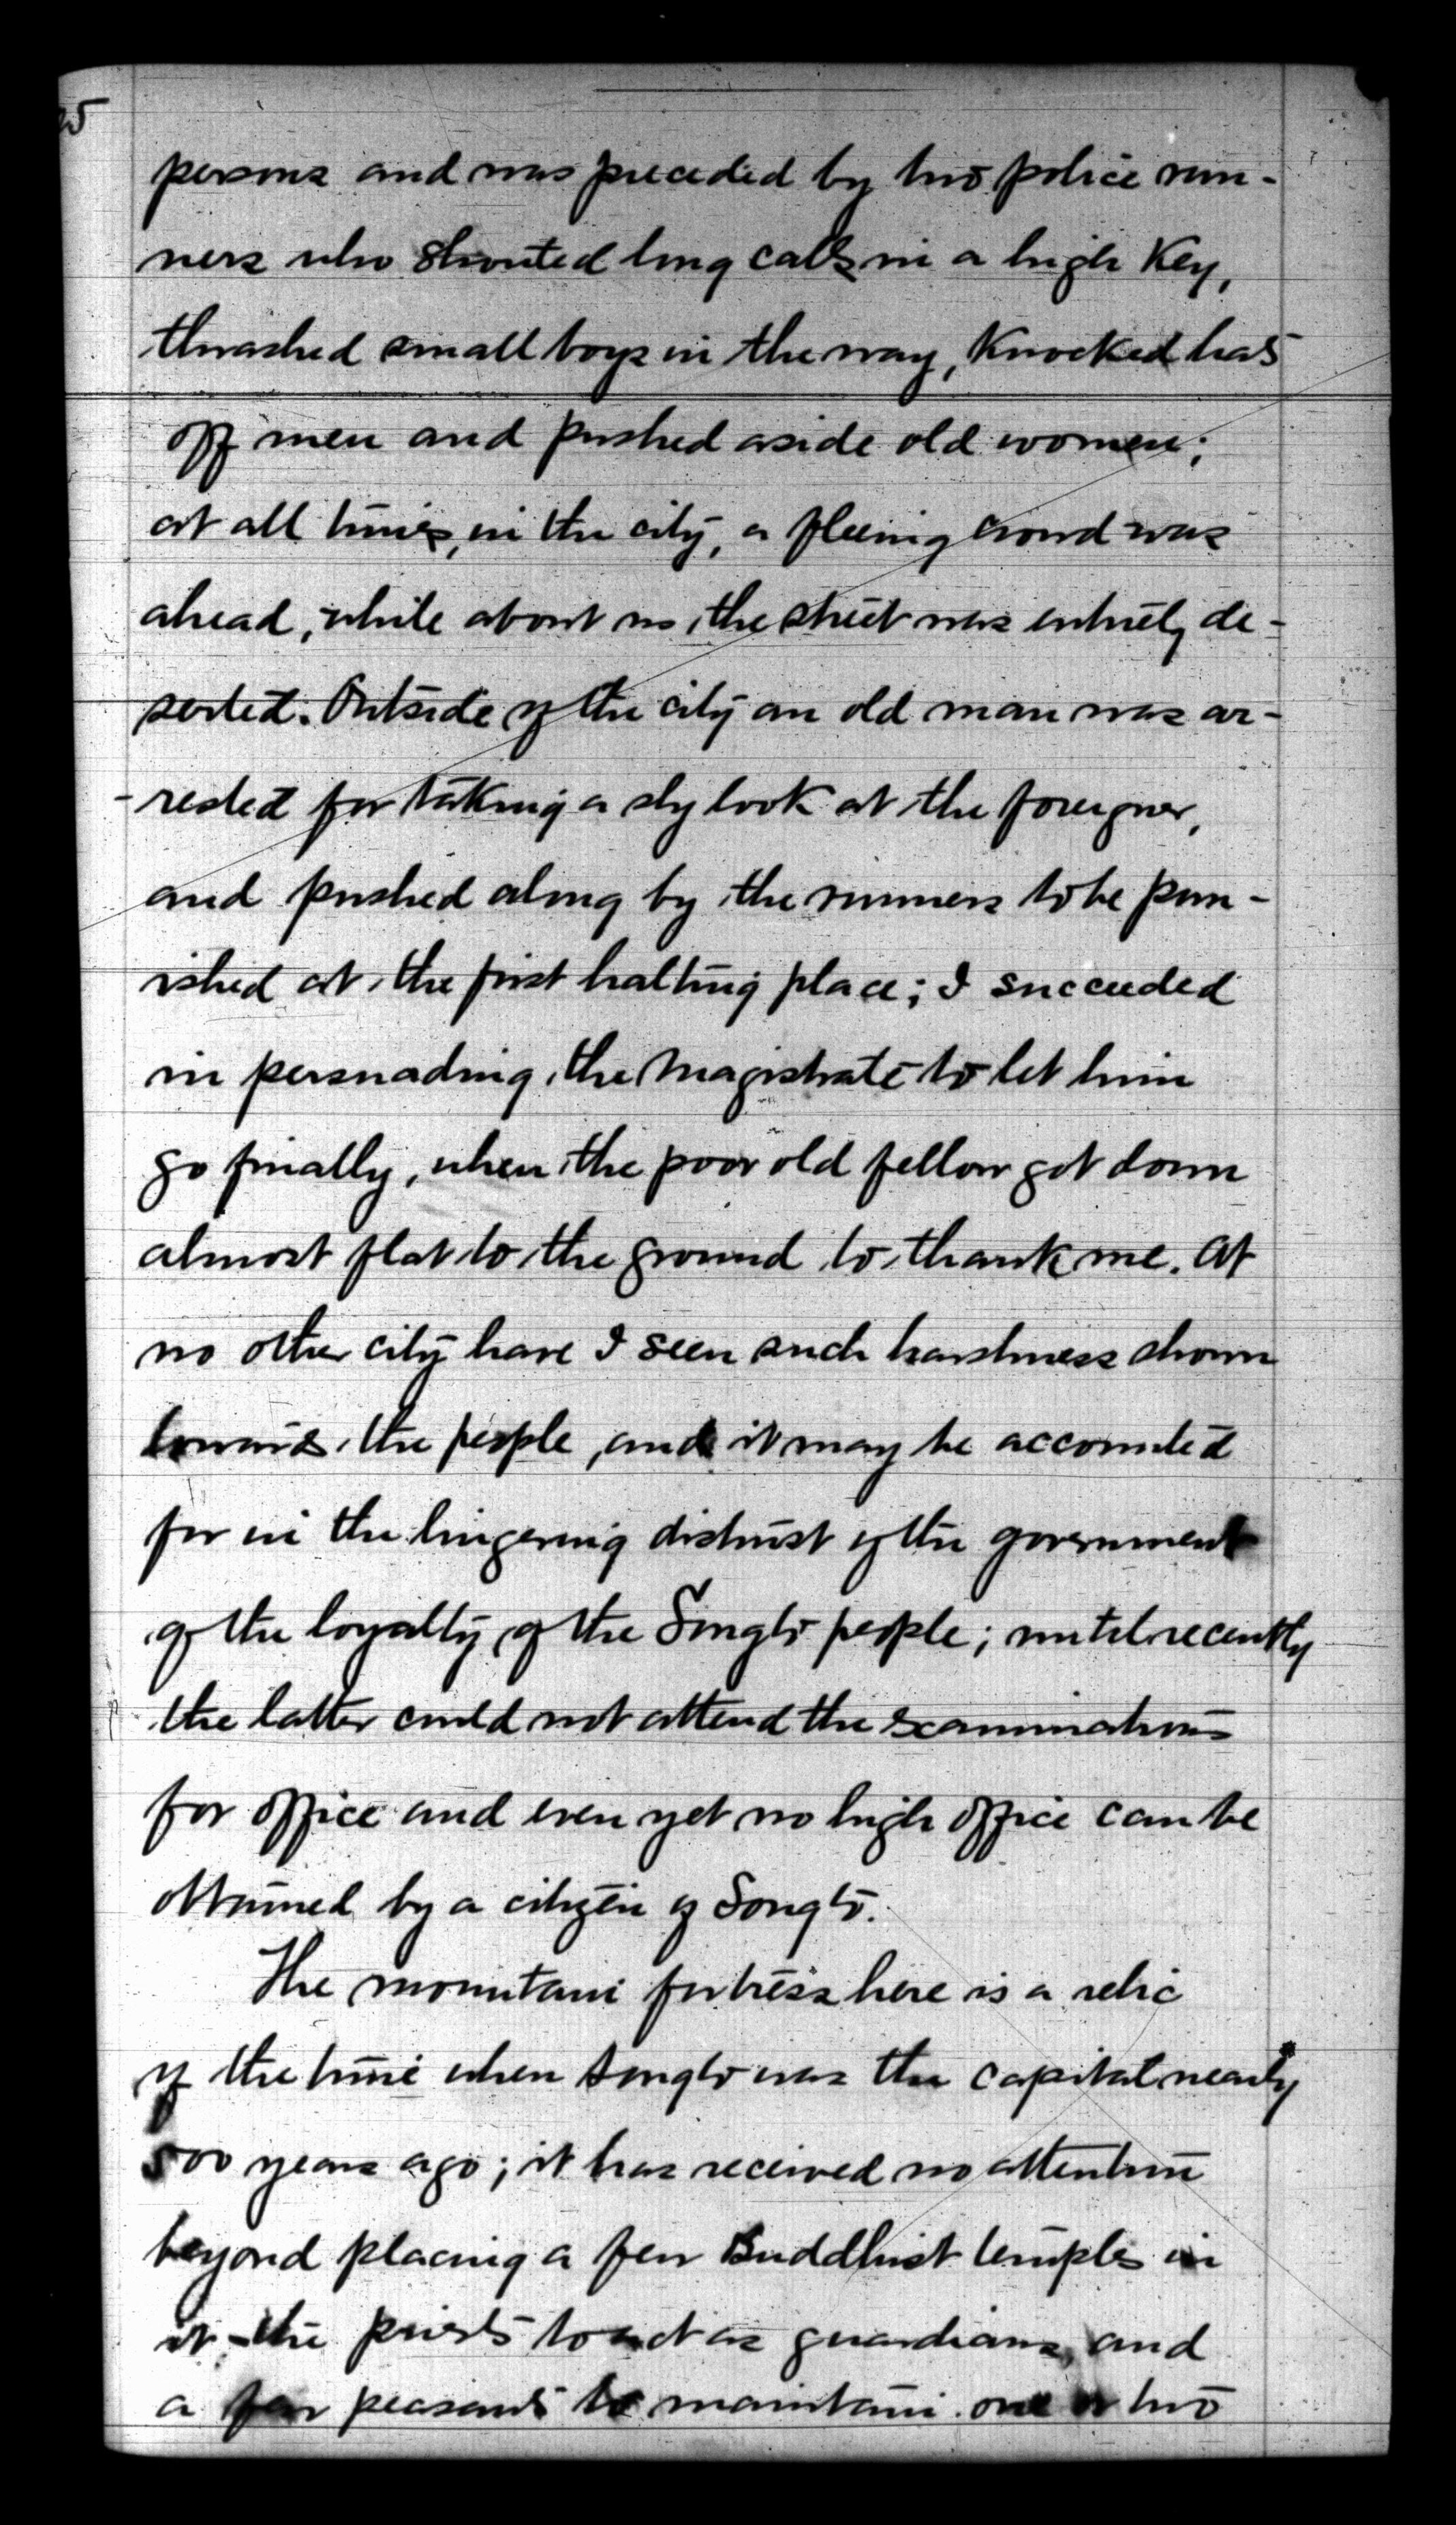 persons and was preceded by two police run-
ners who shouted long calls in a high key,
thrashed small boys in the way, knocked hats
off men and pushed aside old women;
at all times, in the city, a fleeing crowd was
ahead, while about us, the street was entirely de-
serted. Outside of the city an old man was ar-
-rested for taking a sly look at the foreigner,
and pushed along by the runners to be pun-
ished at the first halting place; I succeeded
in persuading the Magistrate to let him
go finally, when the poor old fellow got down
almost flat to the ground to thank me. At
no other city have I seen such harshness shown
towards the people, and it may be accounted
for in the lingering distrust of the government
of the loyalty of the Songto people; until recently
the latter could not attend the examinations
for office and even yet no high office can be
obtained by a citizen of Songto.
The mountain fortress here is a relic
of the time when Songto was the capital nearly
500 years ago; it has received no attention
beyond placing a few Buddhist temples in
it - the priests to act as guardians, and
a few peasants to maintain one or two